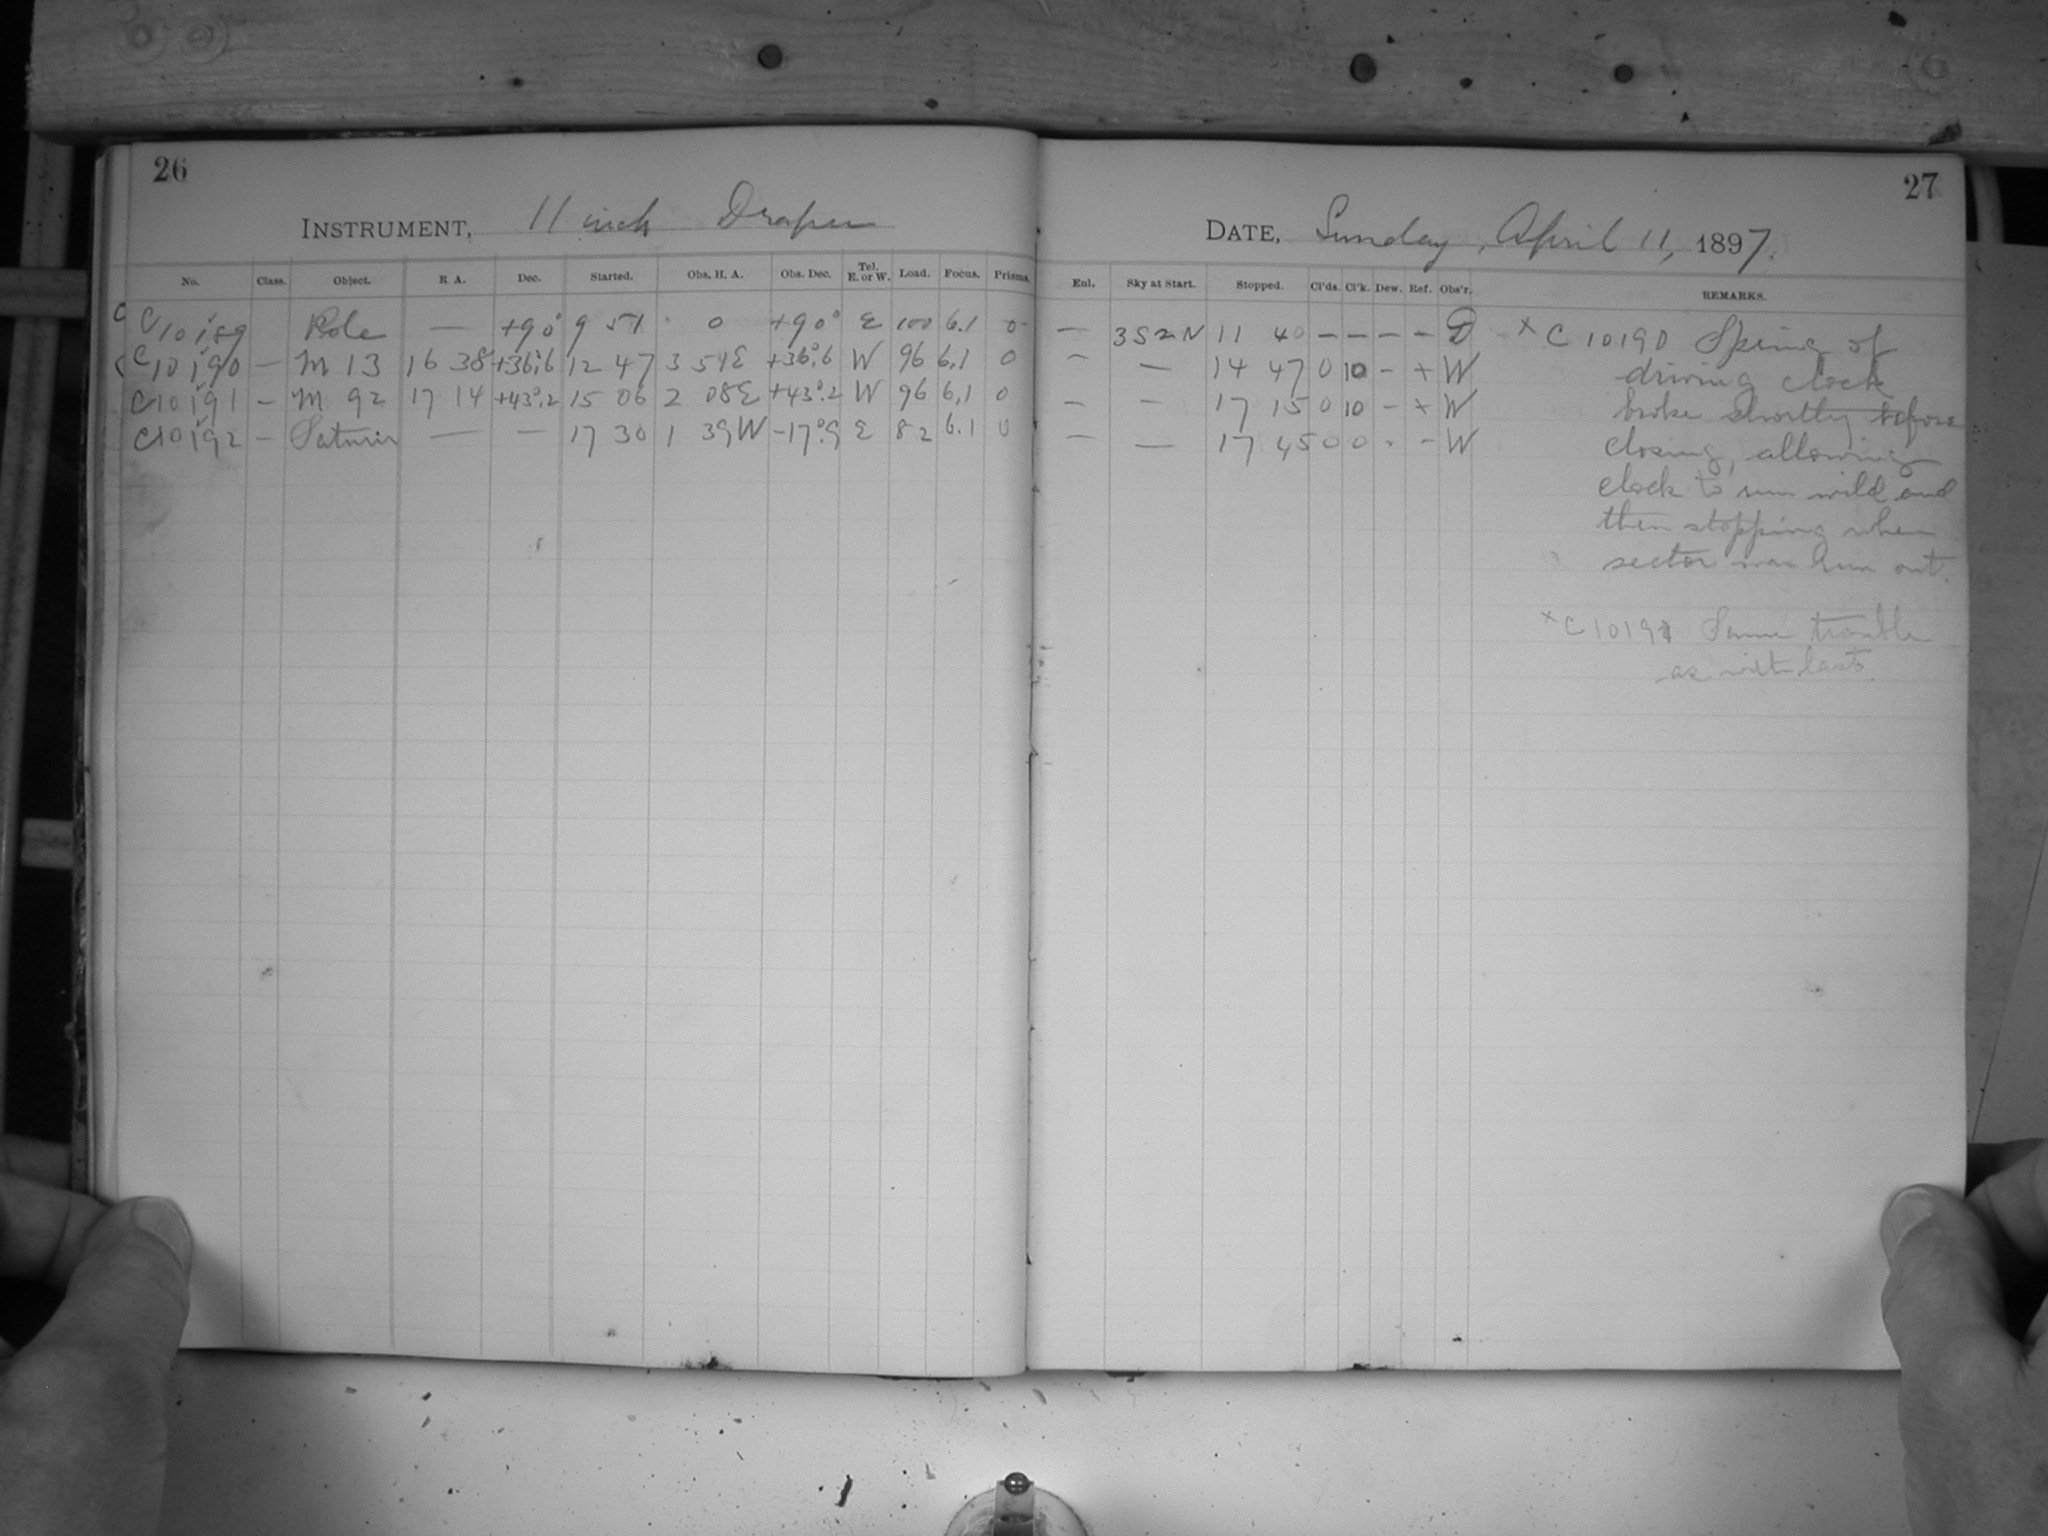 26
INSTRUMENT, 11 inch Draper
No. Class. Object. R. A. Dec. Started. Obs. H. A. Obs. Dec. Tel. E. or W. Load. Focus. Prisms.
C10189 Pole — +90° 9 51 0 +90° E 100 6.1 0
C10190 — M 13 16 38 +36°.6 12 47 3 54E +36°.6 W 96 6.1 0
C10191 — M 92 17 14 +43°.2 15 06 2 08E +43°.2 W 96 6.1 0
C10192 — Saturn — — 17 30 1 39W -17°.9 E 82 6.1 0
27
DATE, Sunday, April 11, 1897.
Enl. Sky at Start. Stopped. Cl'ds. Cl'k. Dew. Ref. Obs'r. REMARKS.
— 3S2N 11 40 — — — — D
— — 14 47 0 10 - x W
— — 17 15 0 10 - x W
— — 17 45 0 0 - - W
x C 10190 Spring of
driving clock
broke shortly before
closing, allowing
clock to run wild and
then stopping when
sector was run out.
x C 10191 Same trouble
as with last.